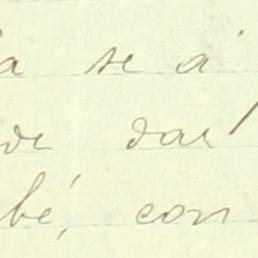 a se á
de dar
bé, con